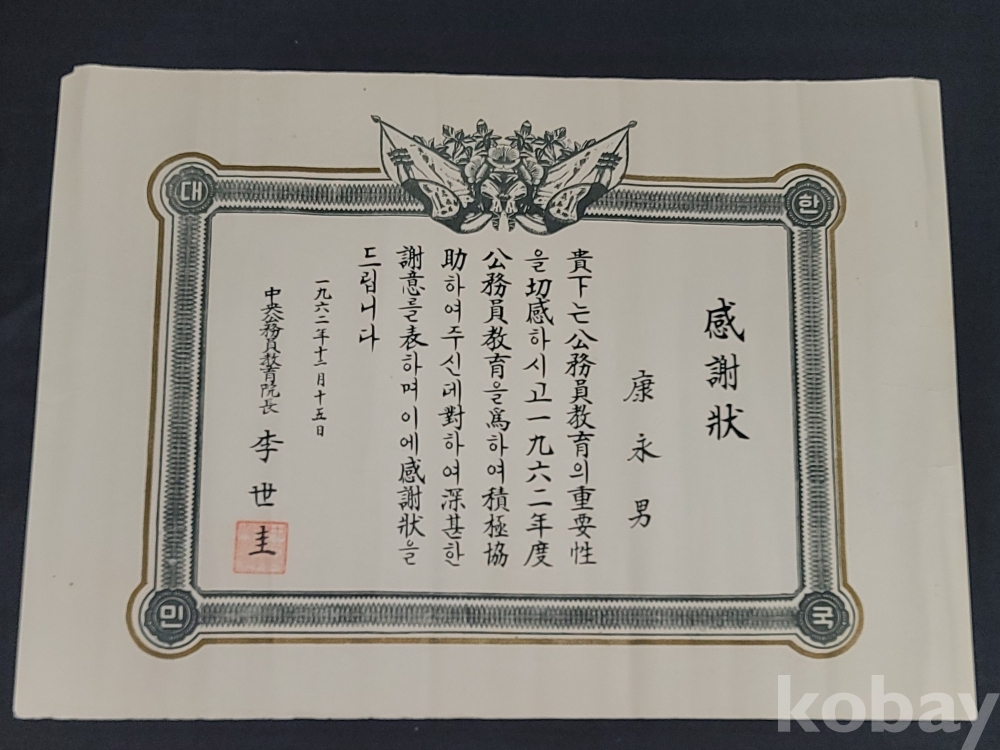 대한민국
感謝狀
康永男
貴下는公務員教育의重要性
을切感하시고一九六二年度
公務員教育을爲하여積極協
助하여주신데對하여深甚한
謝意를表하며이에感謝狀을
드립니다
一九六二年十二月十五日
中央公務員教育院長 李世圭
kobay